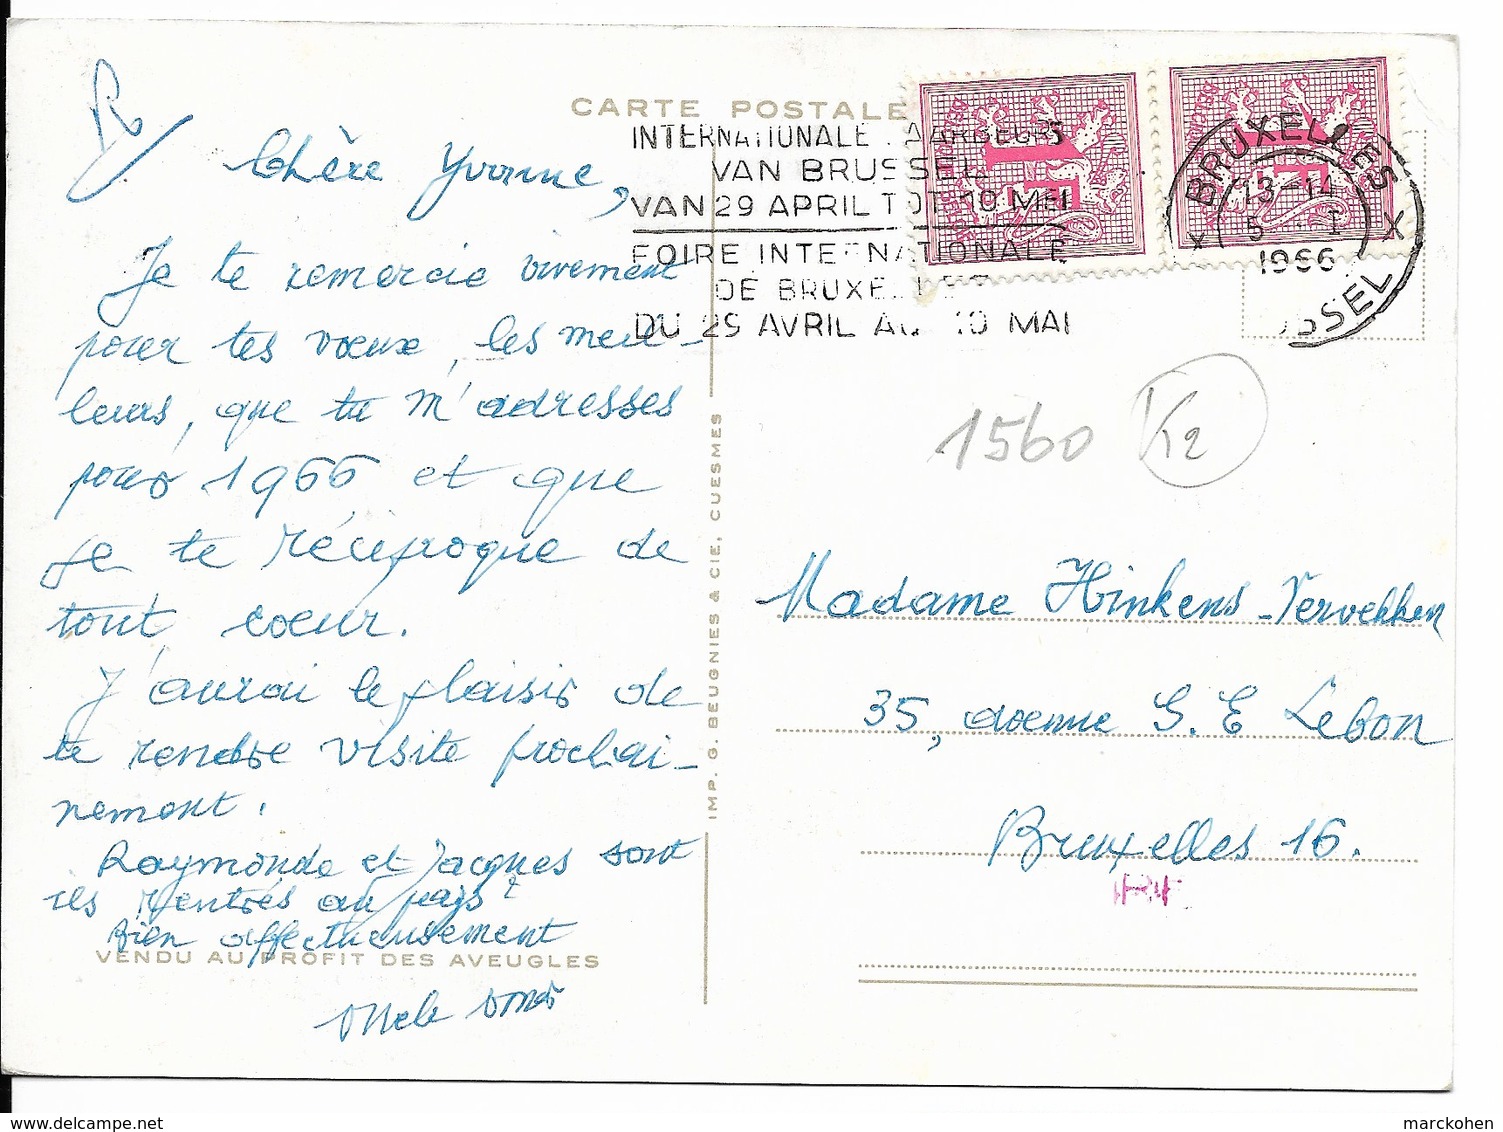 R
CARTE POSTALE
Chère Yvonne,
Je te remercie vivement
pour tes vœux, les meil-
leurs, que tu m'adresses
pour 1966 et que
je te réciproque de
tout coeur.
J'aurai le plaisir de
te rendre visite prochai-
nement.
Raymonde et Jacques sont
ils rentrés au pays?
Bien affectueusement
VENDU AU PROFIT DES AVEUGLES
IMP. G. BEUGNIES & CIE, CUESMES
INTERNATIONALE JAARBEURS
VAN BRUSSEL
VAN 29 APRIL TOT 10 MEI
FOIRE INTERNATIONALE
DE BRUXELLES
DU 29 AVRIL AU 10 MAI
BELGIQUE BELGIE
1F
1F
BRUXELLES
13-14
5 I
1966
BRUSSEL
1560 K2
Madame Hinkens-Vervekken
35, avenue G. E Lebon
Bruxelles 16.
marckohen